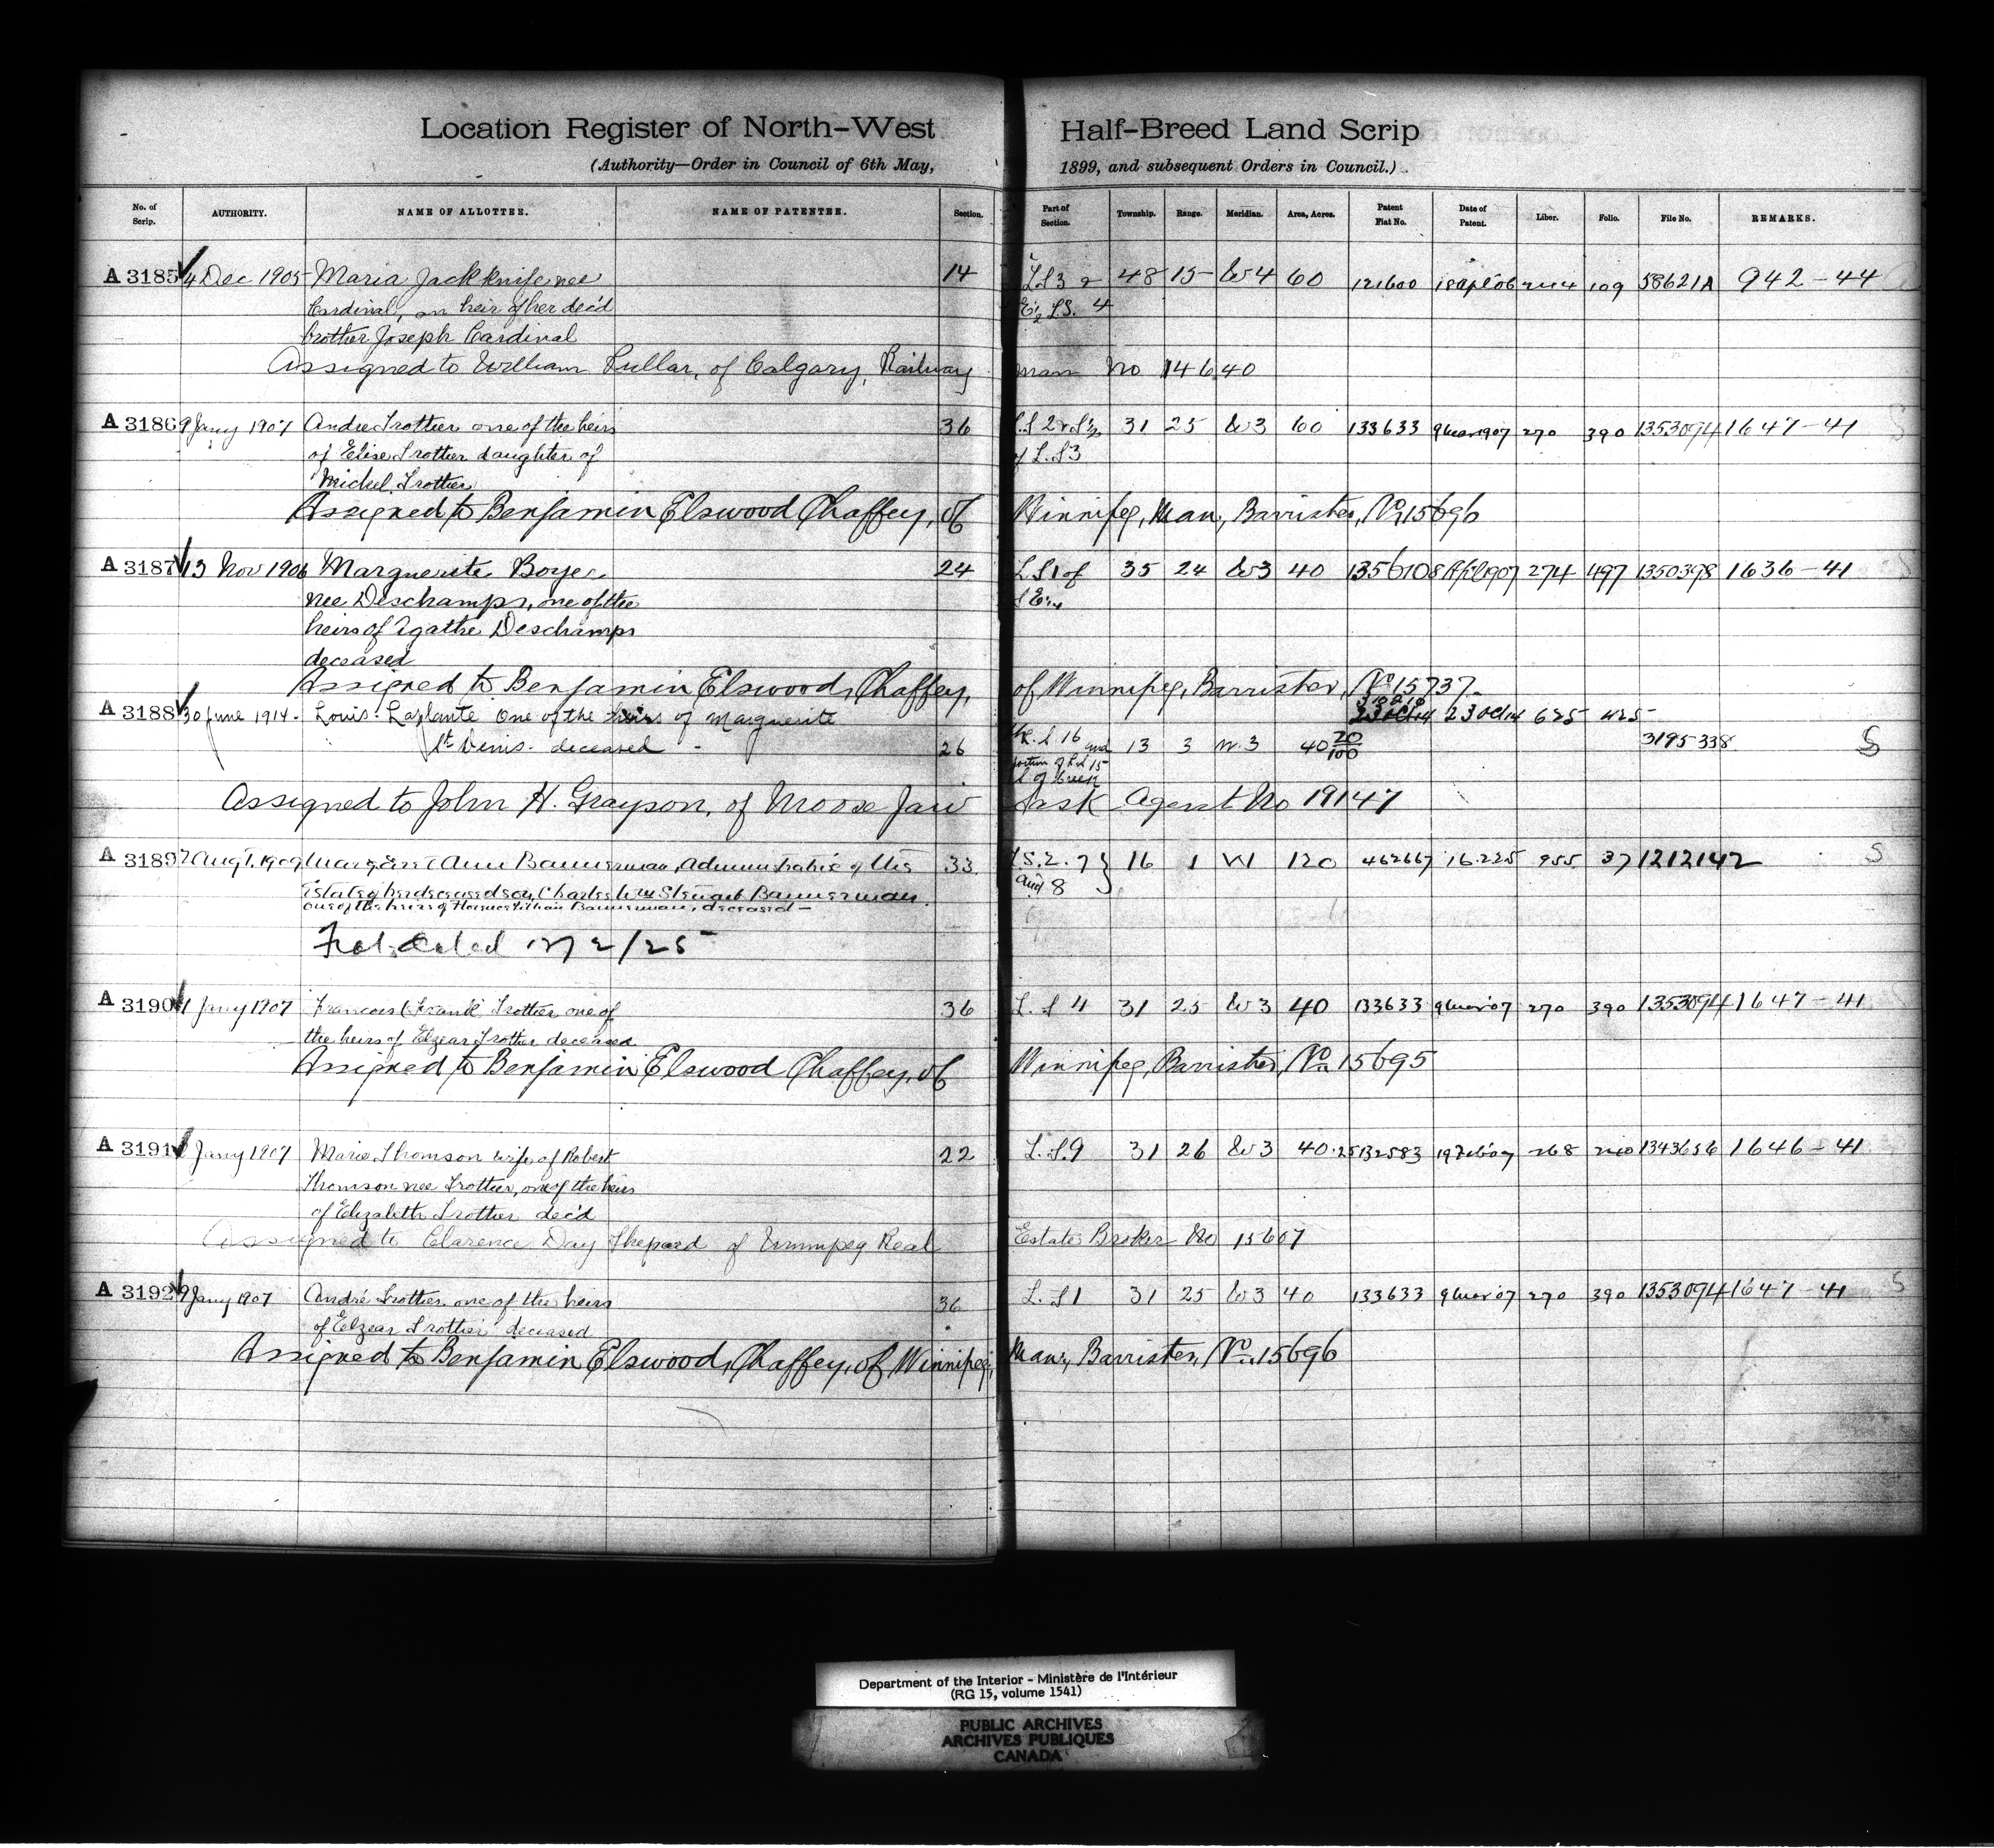 Location Register of North-West Half-Breed Land Scrip
(Authority—Order in Council of 6th May, 1899, and subsequent Orders in Council.)
No. of Scrip. AUTHORITY. NAME OF ALLOTTEE. NAME OF PATENTEE. Section. Part of Section. Township. Range. Meridian. Area, Acres. Patent Fiat No. Date of Patent. Liber. Folio. File No. REMARKS.
A 3185 4 Dec 1905 Maria Jackknife nee 14 L.S 3 & 48 15 W4 60 121600 18 Apl 06 109 58621A 942-44
Cardinal, an heir of her dec'd E½ L.S. 4
brother Joseph Cardinal
Assigned to William of Calgary, Railway man No 14640
A 3186 9 Jany 1907 Andre Trottier one of the heirs 36 L.S 2 & S½ 31 25 W3 60 133633 9 Mar 1907 270 390 1353094 1647-41
of Elise Trottier daughter of of L.S 3
Michel Trottier
Assigned to Benjamin Elswood Chaffey, of Winnipeg, Man, Barrister, No 15696
A 3187 13 Nov 1906 Marguerite Boyer 24 L.S 1 of 35 24 W3 40 135610 8 Apl 1907 274 497 1350398 1636-41
nee Deschamps, one of the S E¼
heirs of Agathe Deschamps
deceased
Assigned to Benjamin Elswood Chaffey, of Winnipeg, Barrister, No 15737
A 3188 30 June 1914 Louis Laplante One of the heirs of Marguerite 23 Oct 14 23 Oct 14 625 425
St Denis deceased 26 L.S 16 and 13 3 W.3 40 20/100 3195338 S
portion of L.S 15
of Creek
Assigned to John H. Grayson, of Moose Jaw Sask Agent No 19147
A 3189 Augt. 1909 Margaret Ann Bannerman, Administratrix of the 33 L.S. 2. 7 } 16 1 W1 120 462667 16.2.25 955 37 1212142 S
Estate of her deceased son, Charles Wm Stewart Bannerman and 8
one of the heirs of Bannerman, deceased
dated 17/2/25
A 3190 Jany 1907 Francois (Frank) Trottier one of 36 L.S 4 31 25 W3 40 133633 9 Mar 07 270 390 1353094 1647-41
the heirs of Elzear Trottier deceased
Assigned to Benjamin Elswood Chaffey, of Winnipeg, Barrister, No 15695
A 3191 Jany 1907 Marie Thomson wife of Robert 22 L.S.9 31 26 W3 40.25 132583 19 Feb 07 268 1343656 1646-41
Thomson nee Trottier, one of the heirs
of Elizabeth Trottier dec'd
Assigned to Clarence Day Shepard of Winnipeg Real Estate Broker No 15607
A 3192 9 Jany 1907 André Trottier one of the heirs 36 L.S 1 31 25 W3 40 133633 9 Mar 07 270 390 1353094 1647-41 S
of Elzear Trottier deceased
Assigned to Benjamin Elswood Chaffey, of Winnipeg, Man., Barrister, No 15696
Department of the Interior - Ministère de l'Intérieur
(RG 15, volume 1541)
PUBLIC ARCHIVES
ARCHIVES PUBLIQUES
CANADA